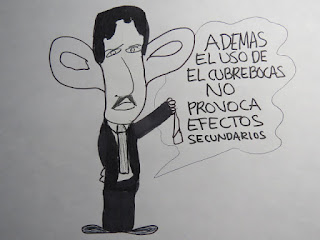 ADEMAS
EL USO DE
EL CUBREBOCAS
NO
PROVOCA
EFECTOS
SECUNDARIOS